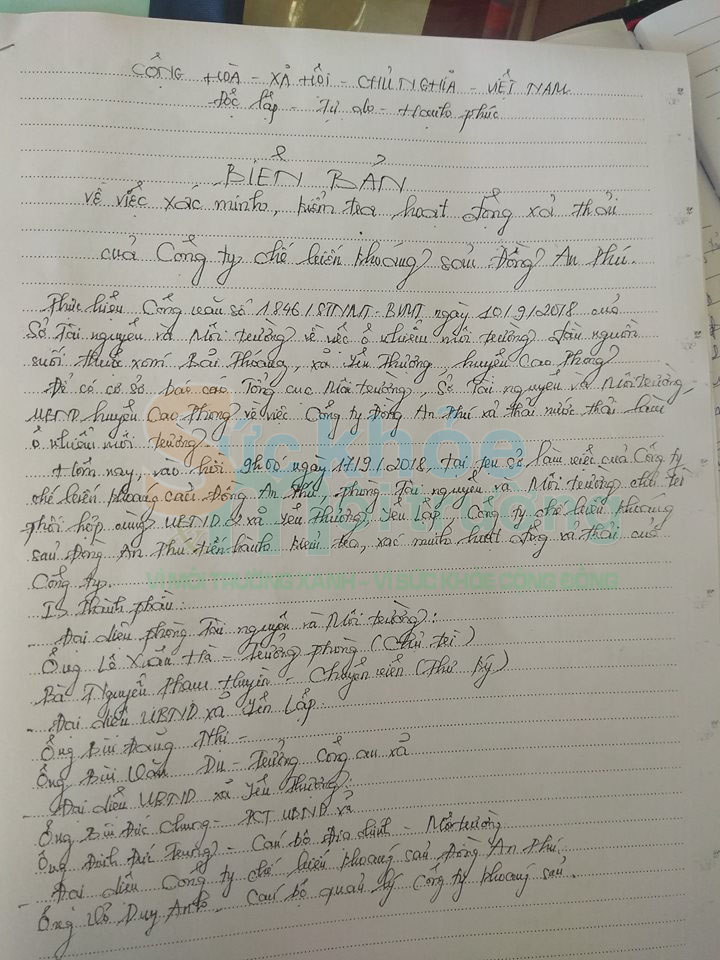 CỘNG HOÀ - XÃ HỘI - CHỦ NGHĨA - VIỆT NAM
Độc lập - Tự do - Hạnh phúc
BIÊN BẢN
về việc xác minh, kiểm tra hoạt động xả thải
của Công ty chế biến khoáng sản Đồng An Phú.
Thực hiện Công văn số 1846/STNMT-BVMT ngày 10/9/2018 của
Sở Tài nguyên và Môi trường về việc ô nhiễm môi trường đầu nguồn
suối thuộc xóm Bãi Thoáng, xã Yên Thượng, huyện Cao Phong
Để có cơ sở báo cáo Tổng cục Môi trường, Sở Tài nguyên và Môi trường,
UBND huyện Cao Phong về việc Công ty Đồng An Phú xả thải nước thải làm
ô nhiễm môi trường.
Hôm nay, vào hồi 9h00 ngày 17/9/2018, tại trụ sở làm việc của Công ty
chế biến khoáng sản Đồng An Phú, phòng Tài nguyên và Môi trường chủ trì
phối hợp cùng UBND xã Yên Thượng, Yên Lập, Công ty chế biến khoáng
sản Đồng An Phú tiến hành kiểm tra, xác minh hoạt động xả thải của
Công ty.
Sức khỏe
Môi trường
VÌ MÔI TRƯỜNG XANH - VÌ SỨC KHỎE CỘNG ĐỒNG
I - Thành phần:
- Đại diện phòng Tài nguyên và Môi trường:
Ông Lê Xuân Hà - Trưởng phòng (Chủ trì)
Bà Nguyễn Phạm Huyền - Chuyên viên (Thư ký)
- Đại diện UBND xã Yên Lập:
Ông Bùi Đăng Nhi -
Ông Bùi Văn Du - Trưởng Công an xã
- Đại diện UBND xã Yên Thượng:
Ông Bùi Đức Chung - PCT UBND xã
Ông Đinh Đức Trung - Cán bộ Địa chính - Môi trường
- Đại diện Công ty chế biến khoáng sản Đồng An Phú
Ông Võ Duy Anh - Cán bộ quản lý Công ty khoáng sản.